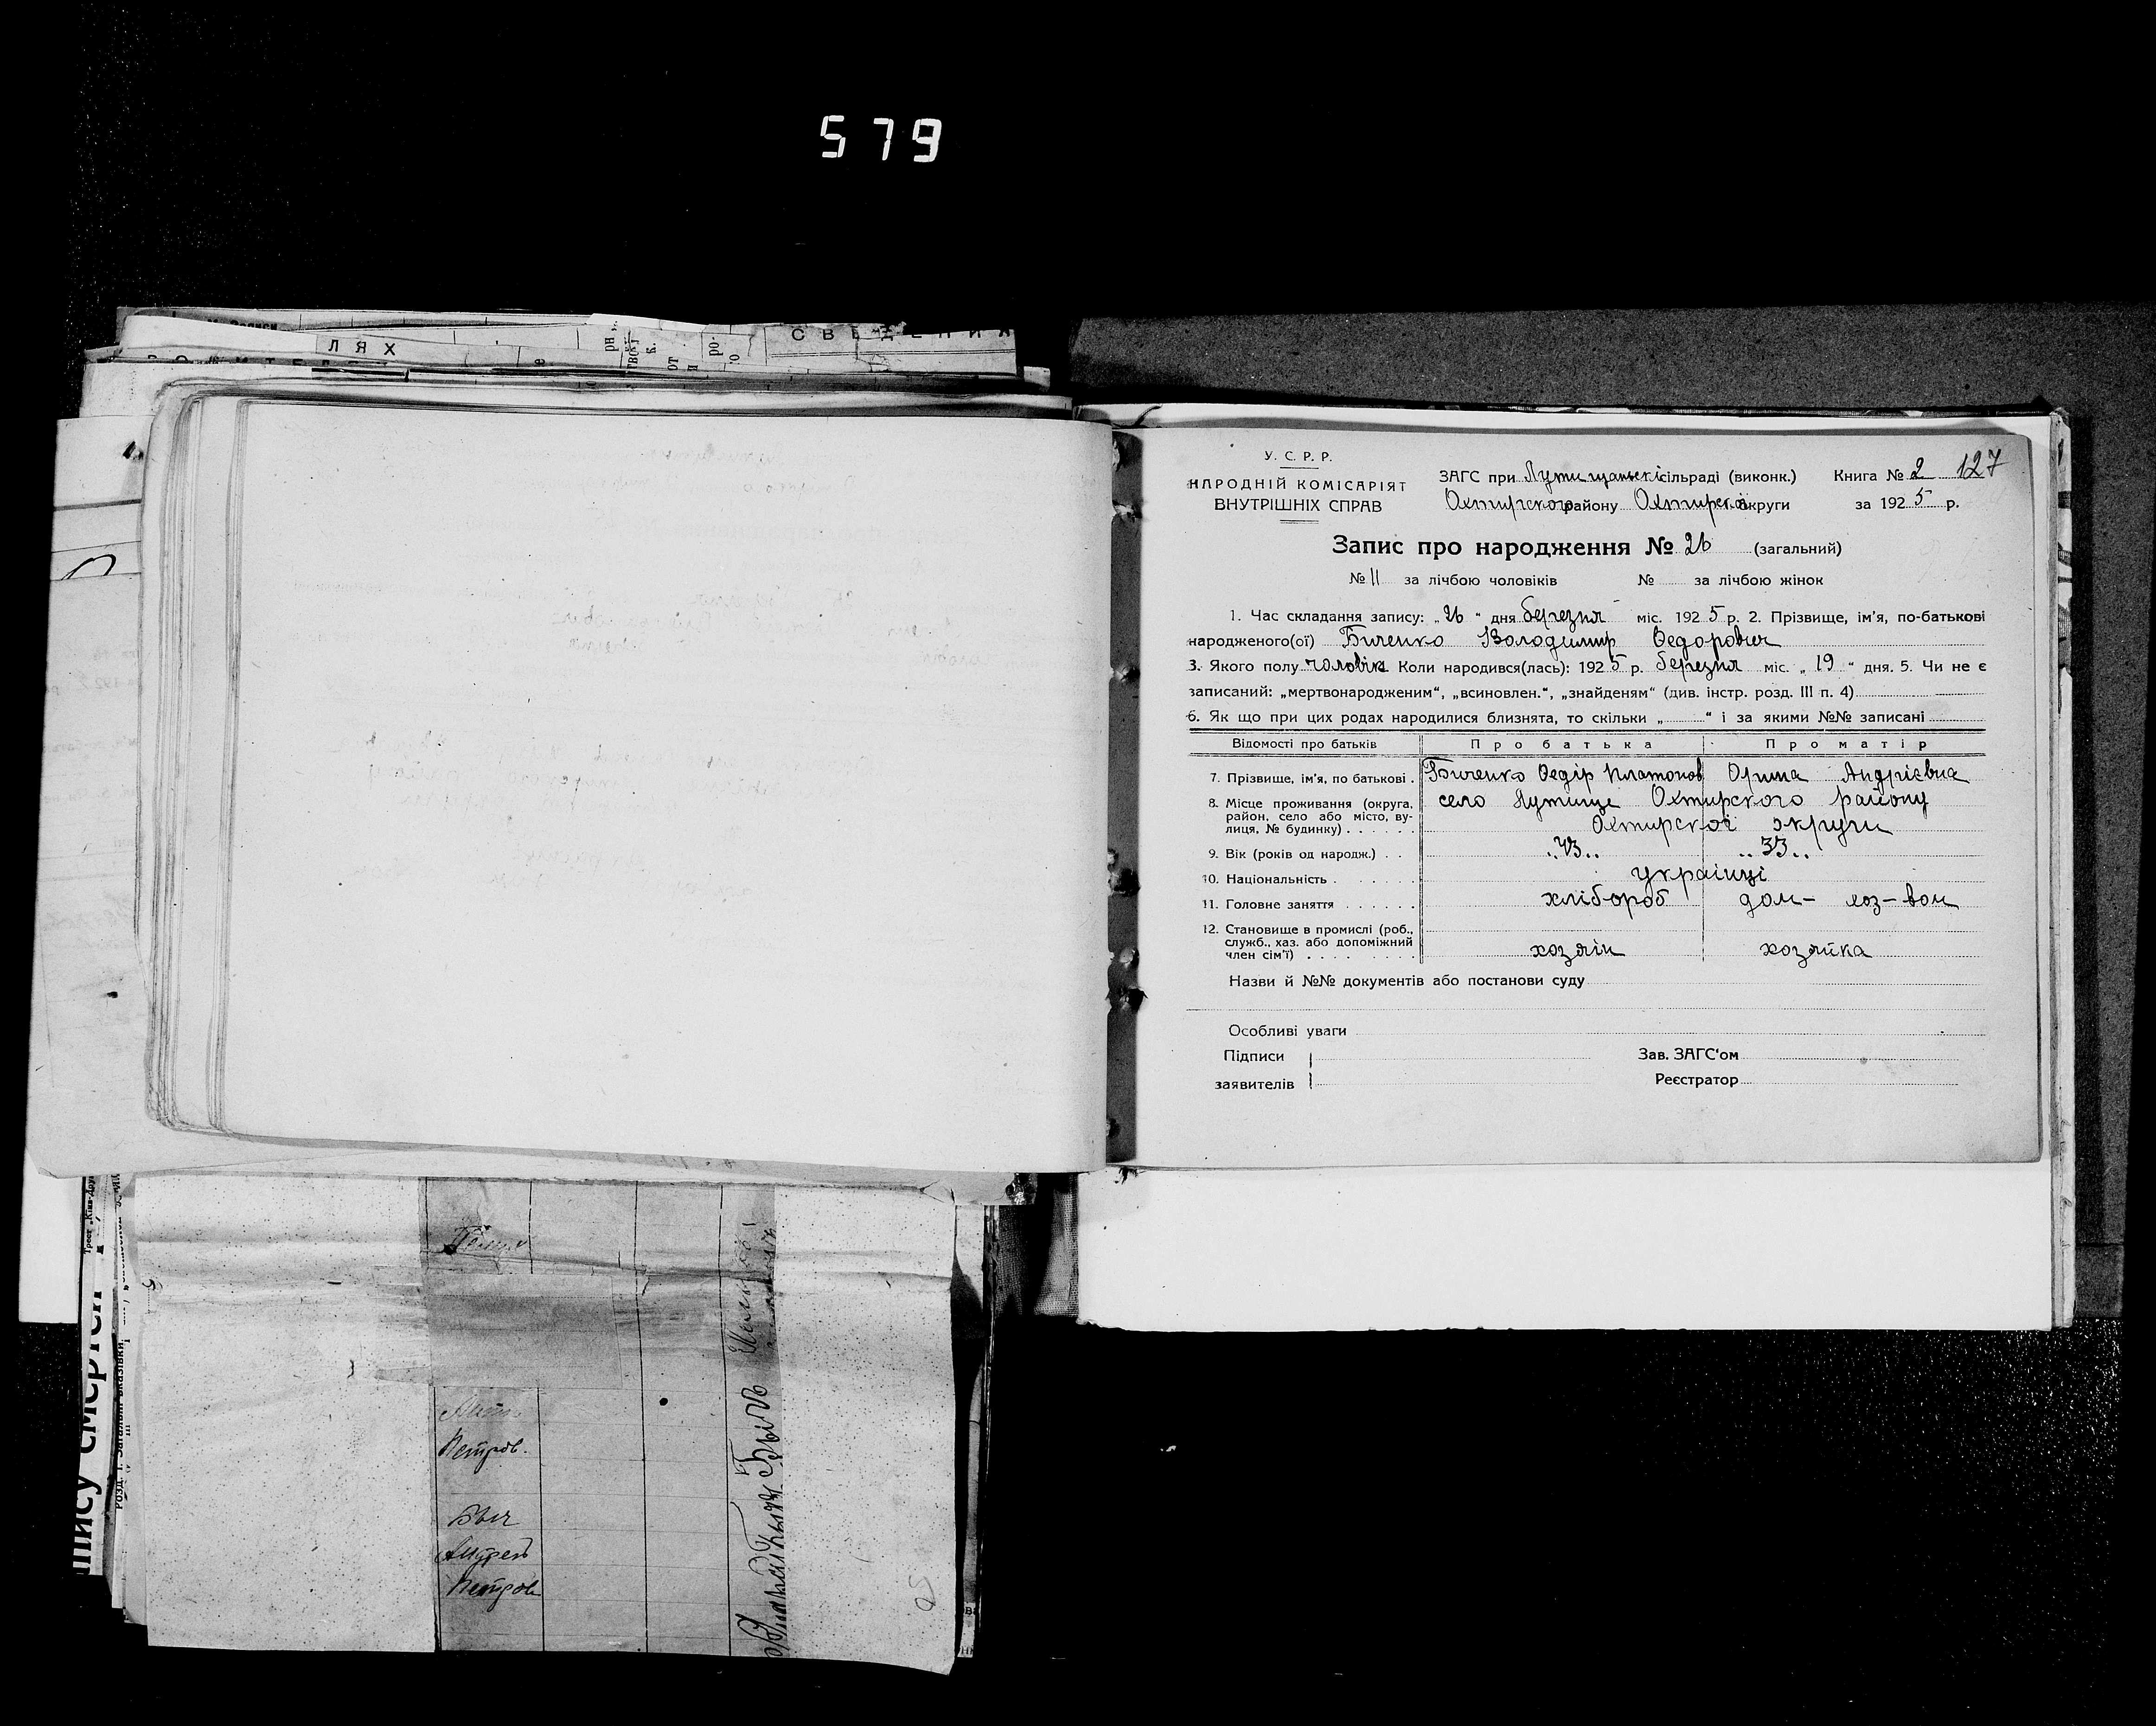 579
ЛЯХ
У. С. Р. Р.
НАРОДНІЙ КОМІСАРІЯТ
ВНУТРІШНІХ СПРАВ
ЗАГС при Лутищанські сільраді (виконк.) Книга № 2 127
Охтирского району Охтирскоі округи за 1925 р.
Запис про народження № 26 (загальний)
№ 11 за лічбою чоловіків № за лічбою жінок
1. Час складання запису: „26“ дня березня міс. 1925 р. 2. Прізвище, ім'я, по-батькові
народженого(ої) Биченко Володимир Федорович
3. Якого полу чоловік Коли народився(лась): 1925 р. березня міс. „19“ дня. 5. Чи не є
записаний: „мертвонародженим“, „всиновлен.“, „знайденям“ (див. інстр. розд. III п. 4)
6. Як що при цих родах народилися близнята, то скільки „ “ і за якими №№ записані
Відомості про батьків Про батька Про матір
7. Прізвище, ім'я, по батькові . Биченко Федір Платонов Орина Андрієвна
8. Місце проживання (округа, район, село або місто, вулиця, № будинку) . . . . . . село Лутище Охтирского району
Охтирскоі округи
9. Вік (років од народж.) . . „43„ „33„
10. Національність . . . . . . . українці
11. Головне заняття . . . . . . хлібороб дом- хоз-вом
12. Становище в промислі (роб.,
служб., хаз. або допоміжний
член сім'ї) . . . . . . . . . хозяін хозяйка
Назви й №№ документів або постанови суду
Особливі уваги
Підписи Зав. ЗАГС'ом
заявителів Реєстратор
Петров.
Быч
Андрей
Петров